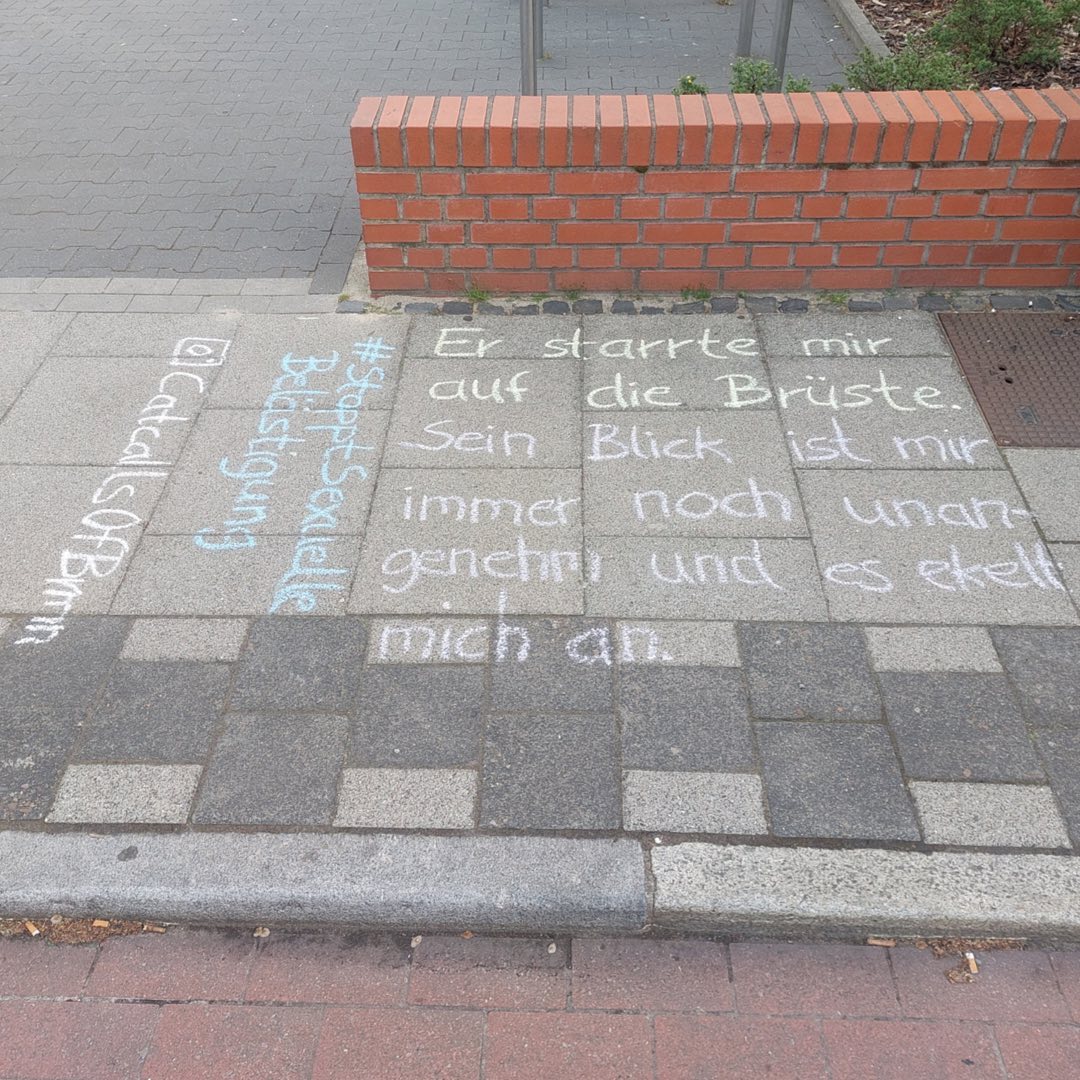 Er starrte mir
auf die Brüste.
Sein Blick ist mir
immer noch unan-
genehm und es ekelt
mich an.
#stopptSexuelle
Belästigung
CatcallsOfBrmn